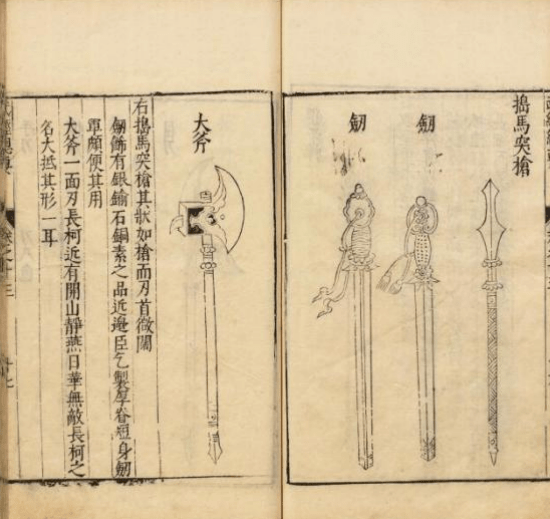 搗馬突槍
劒
劒
大斧
右搗馬突槍其狀如槍而刃首微闊
劒飾有銀鍮石銅素之品近邊臣乞製厚脊短身劒
軍頗便其用
大斧一面刃長柯近有開山靜燕日華無敵長柯之
名大抵其形一耳